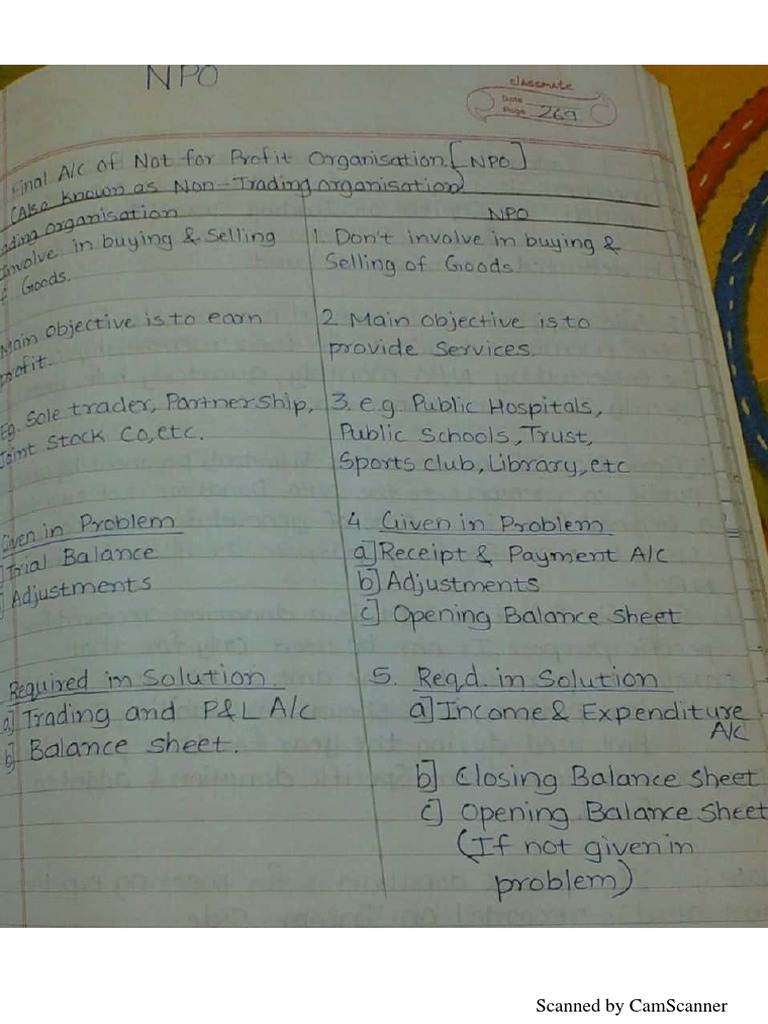 NPO
classmate
Date
Page 269
Final A/C of Not for Profit Organisation [NPO]
(Also known as Non-Trading organisation)
ading organisation
Involve in buying & Selling
f Goods.
Main objective is to earn
profit.
Eg. Sole trader, Partnership,
Joint Stock Co, etc.
Given in Problem
Trial Balance
Adjustments
Required in Solution
a] Trading and P&L A/C
b] Balance sheet.
NPO
1. Don't involve in buying &
Selling of Goods
2 Main objective is to
provide Services.
3. e.g. Public Hospitals,
Public Schools, Trust,
Sports club, Library, etc
4. Given in Problem
a] Receipt & Payment A/C
b] Adjustments
c] Opening Balance Sheet
5. Reqd. in Solution
a] Income & Expenditure
A/C
b] Closing Balance sheet
c] Opening Balance Sheet
(If not given in
problem)
Scanned by CamScanner